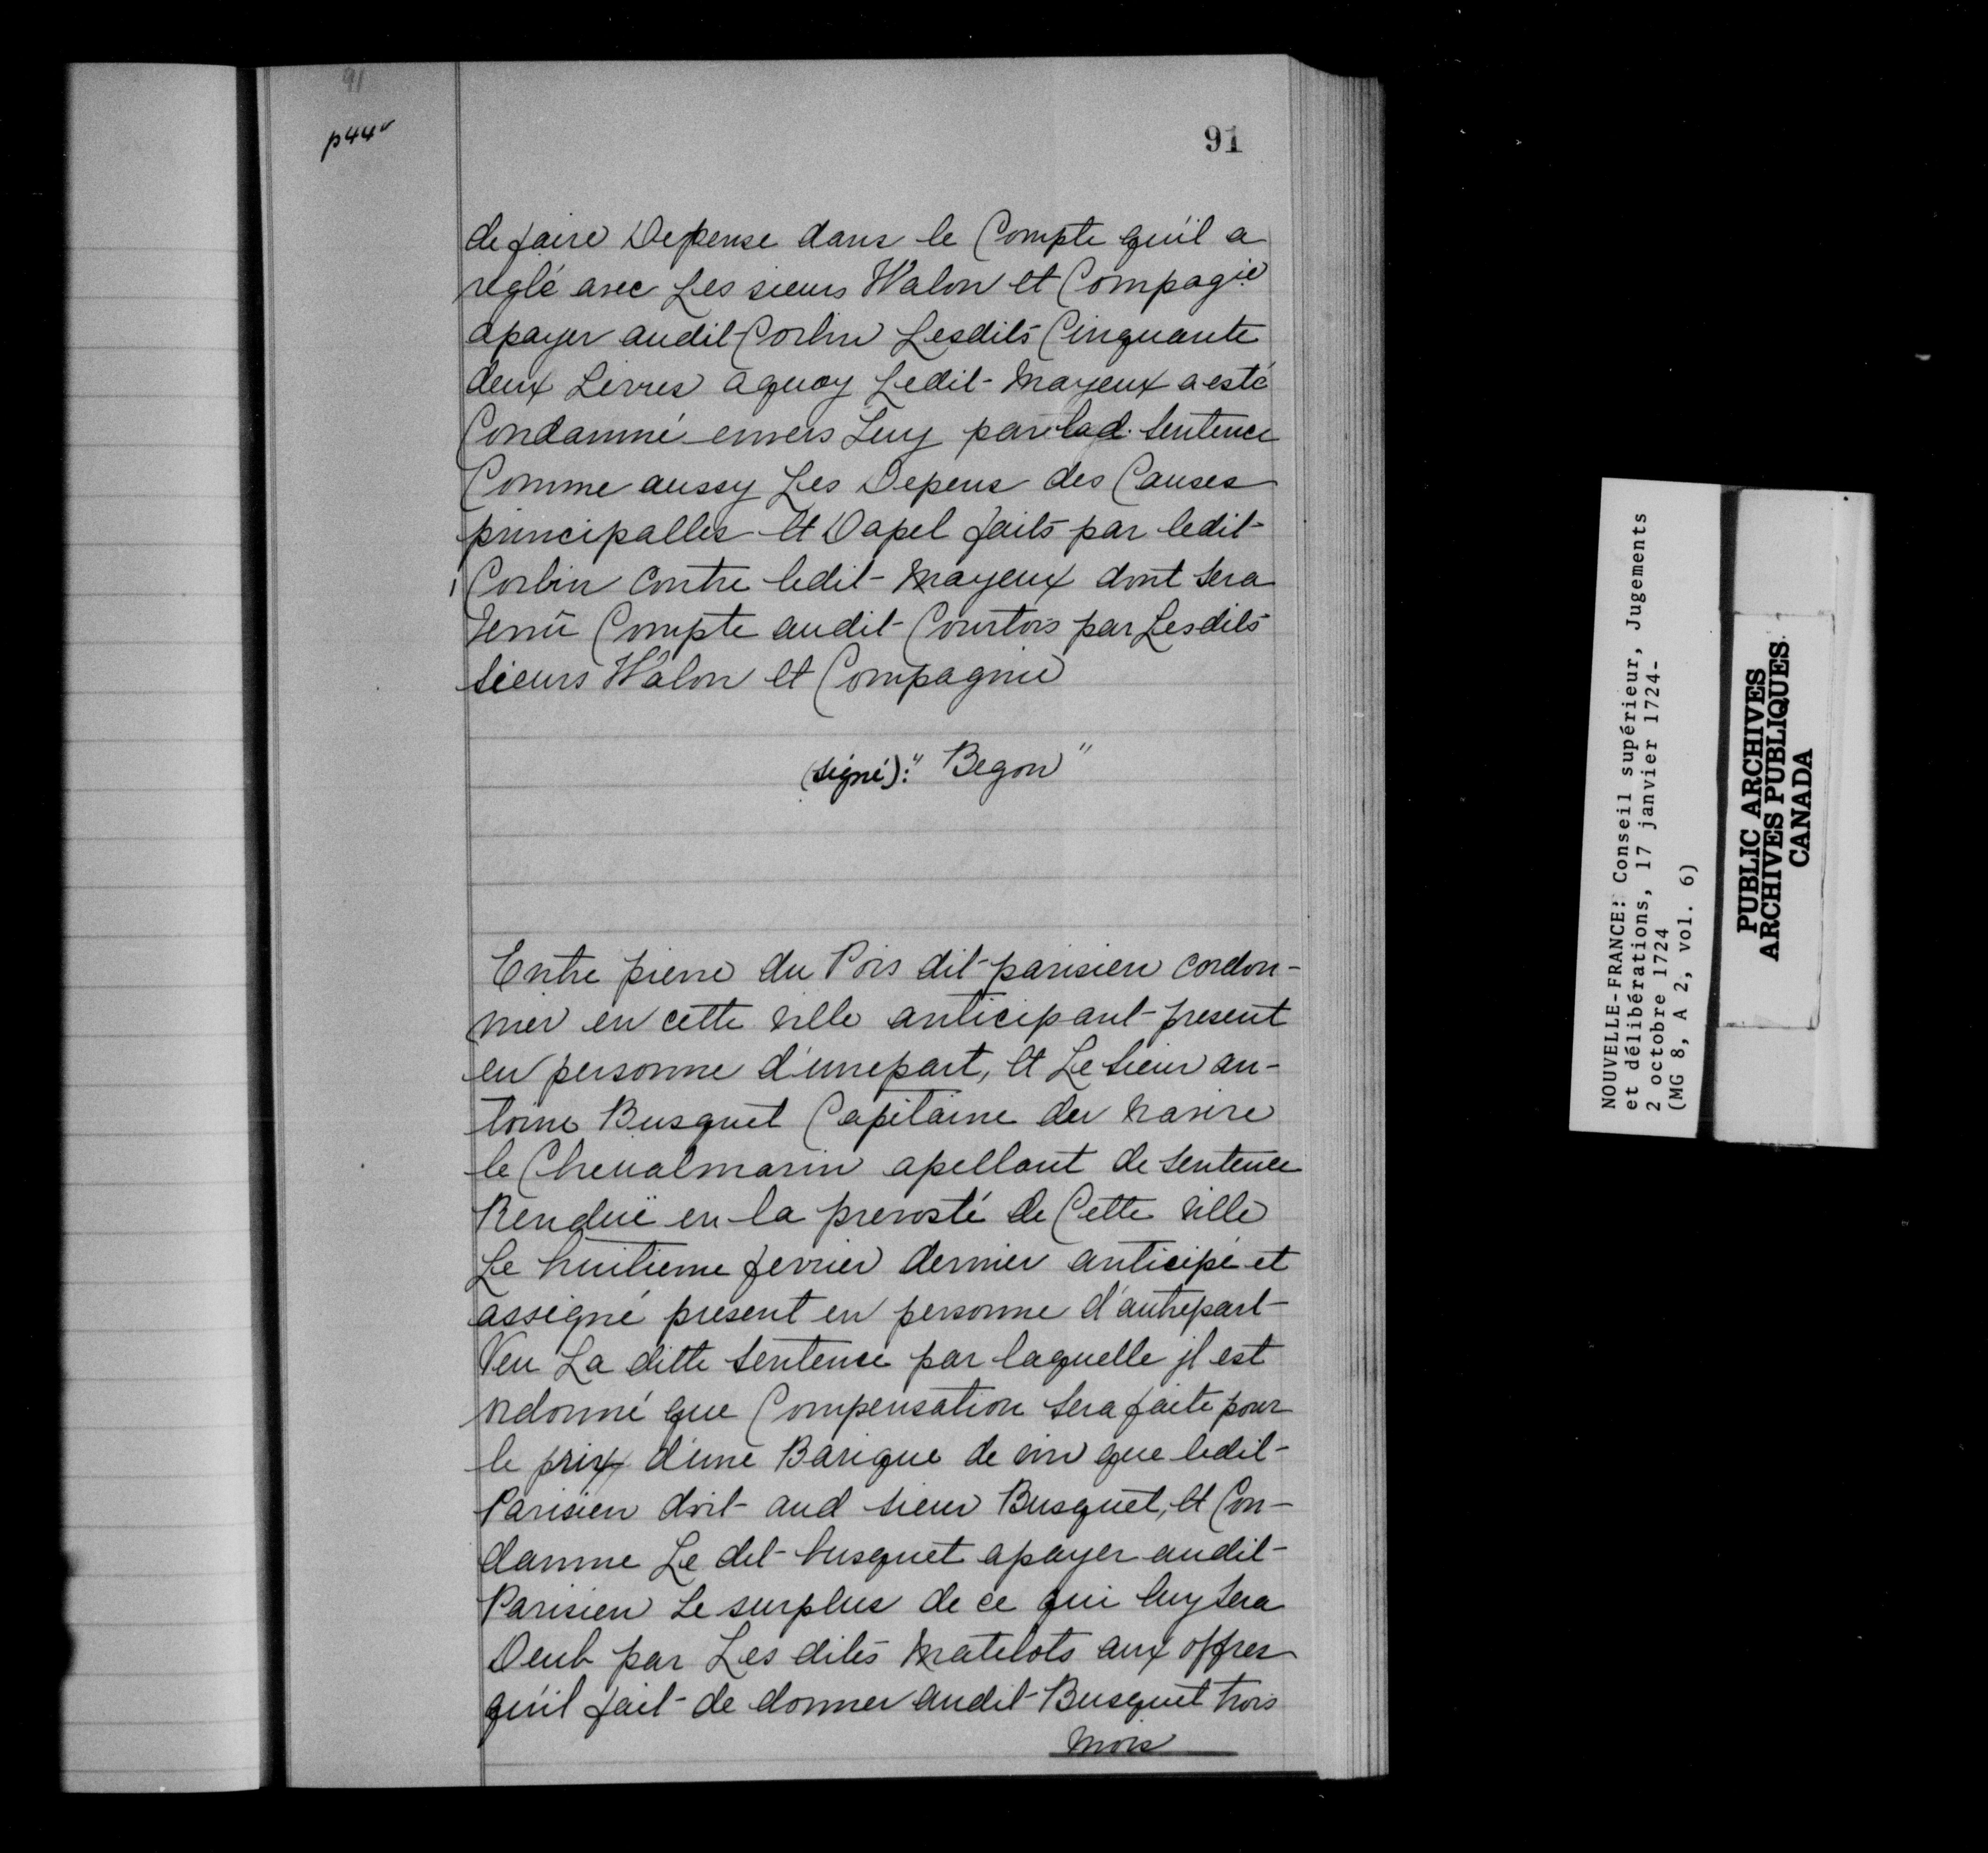 91
p44v
91
de faire Depense dans le Compte qu'il a
reglé avec Les sieurs Walon et Compagie
apayer audit Corbin Lesdits Cinquante
deux Livres aquoy Ledit Mayeux a esté
Condamné envers Luy par lad. Sentence
Comme aussy Les Depens des Causes
principalles et Dapel faits par ledit
Corbin contre ledit Mayeux dont sera
Tenü Compte audit Courtois par Lesdits
sieurs Walon et Compagnie
(signé): "Begon"
Entre pierre du Pois dit parisien cordon-
nier en cette ville anticipant present
en personne d'unepart, et Le sieur an-
toine Busquet Capitaine du navire
le Chevalmarin apellant de sentence
Rendüe en la prevosté de Cette ville
Le huitieme fevrier dernier anticipé et
assigné present en personne d'autrepart
Veu La ditte sentence par laquelle jl est
ordonné que Compensation sera faite pour
le prix d'une Barique de vin que ledit
Parisien doit aud sieur Busquet, et Con-
damne Le dit busquet apayer audit
Parisien Le surplus de ce qui luy sera
Deub par Les dits Matelots aux offres
qu'il fait de donner audit Busquet trois
Mois
NOUVELLE-FRANCE: Conseil supérieur, Jugements
et délibérations, 17 janvier 1724-
2 octobre 1724
(MG 8, A 2, vol. 6)
PUBLIC ARCHIVES
ARCHIVES PUBLIQUES
CANADA